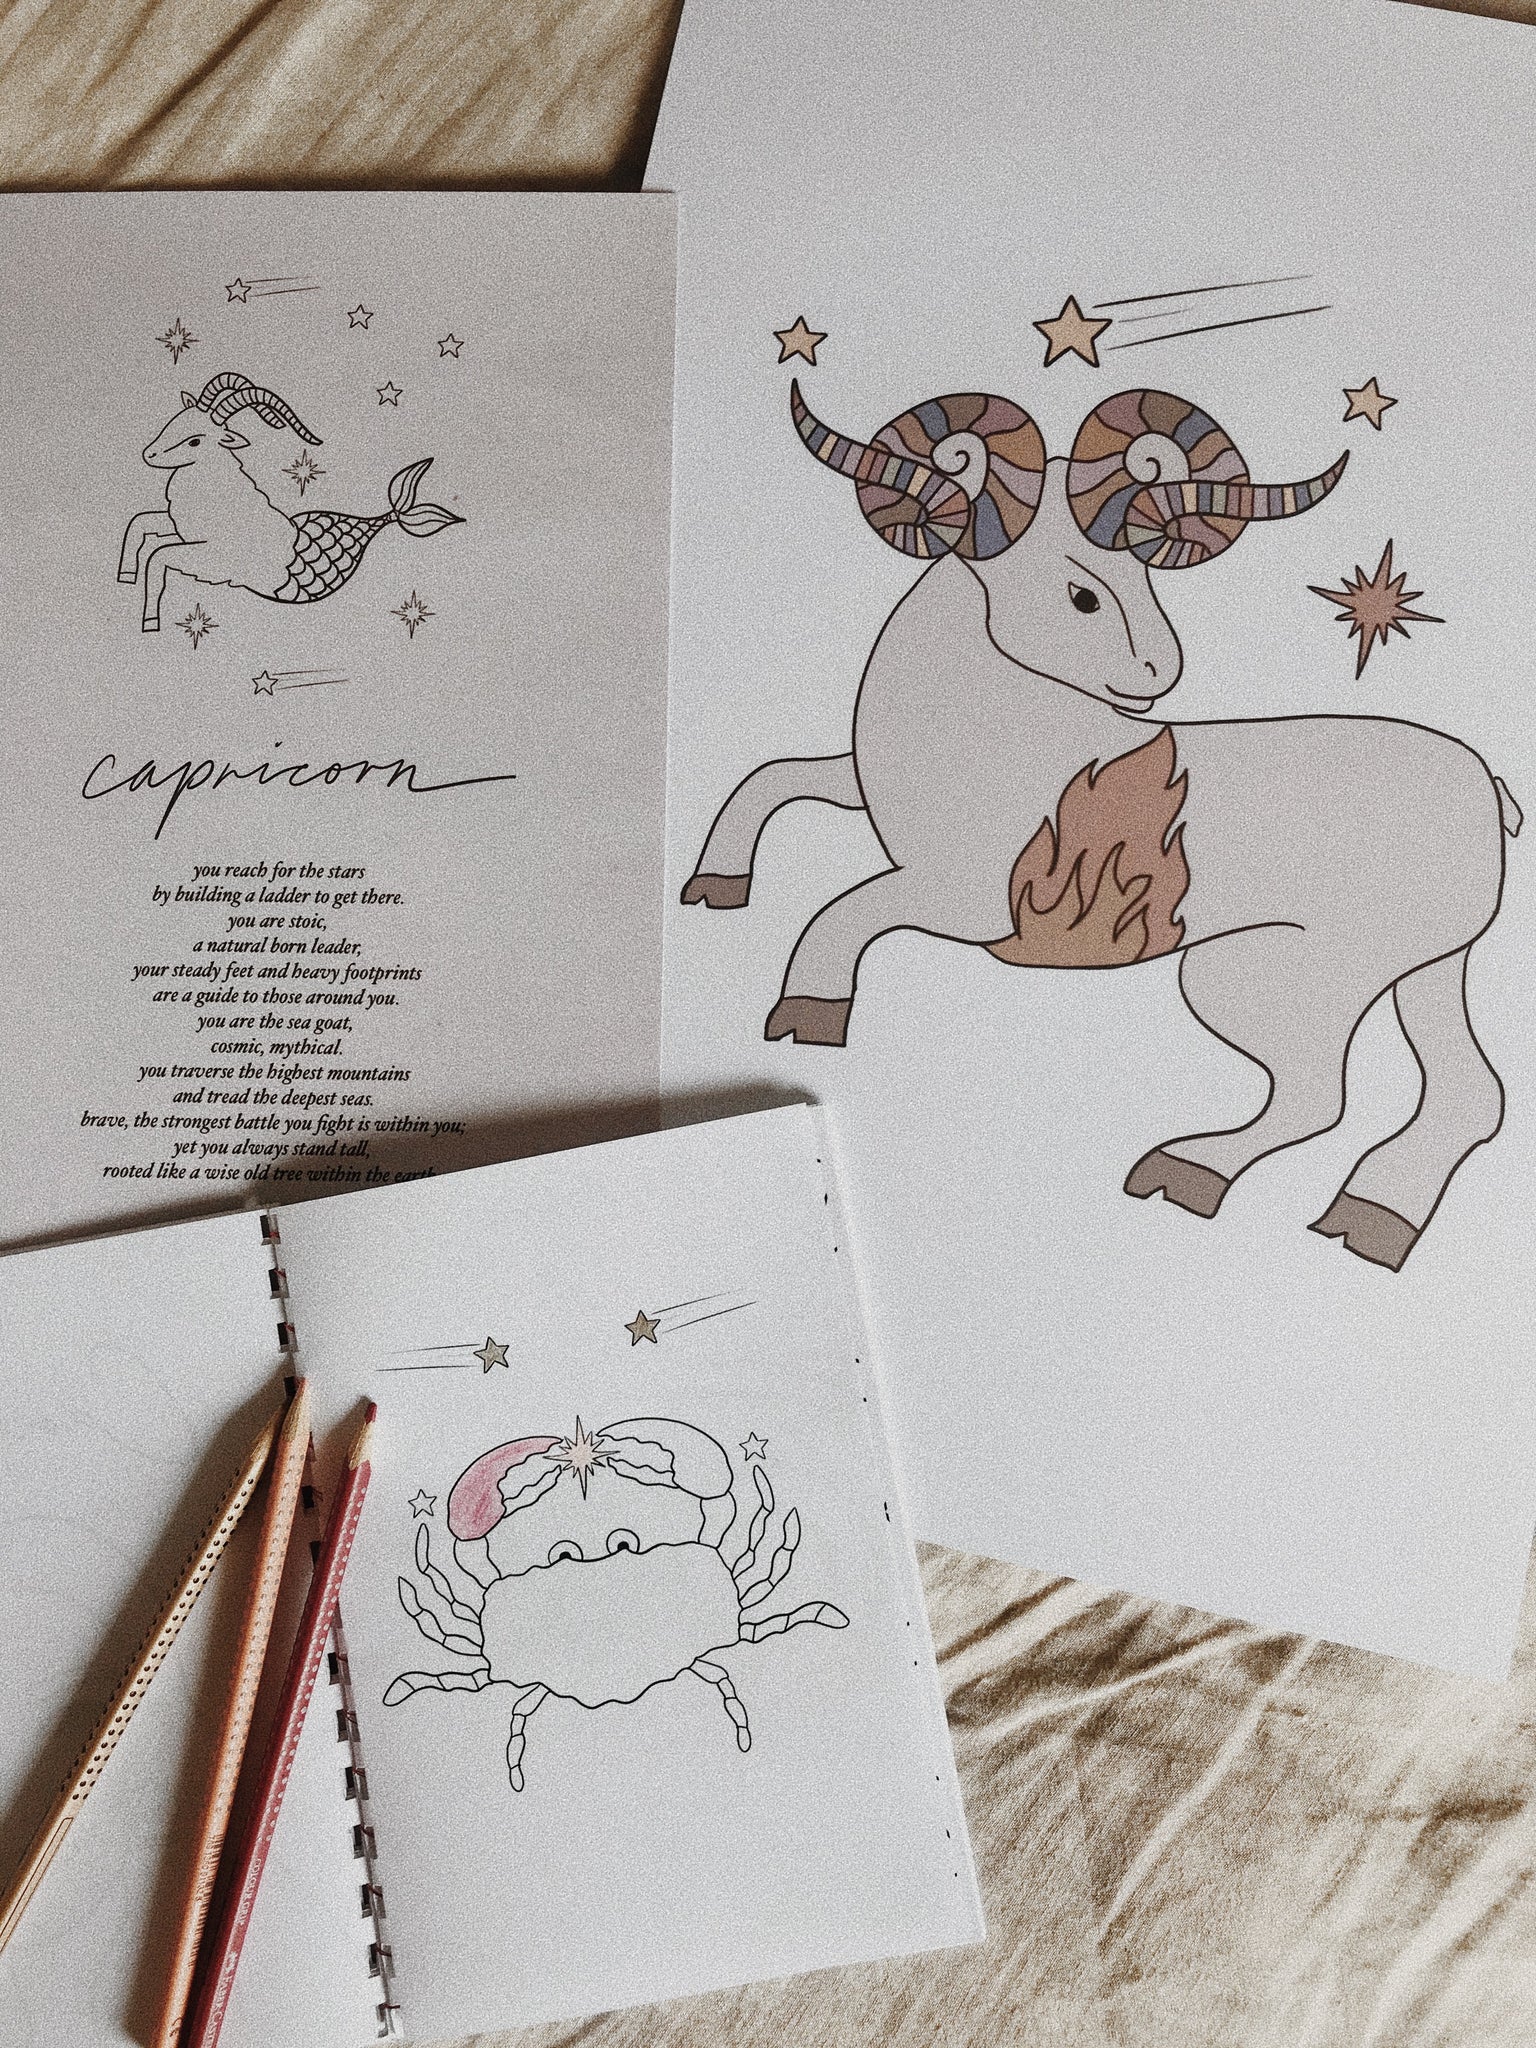 capricorn
you reach for the stars
by building a ladder to get there.
you are stoic,
a natural born leader,
your steady feet and heavy footprints
are a guide to those around you.
you are the sea goat,
cosmic, mythical.
you traverse the highest mountains
and tread the deepest seas.
brave, the strongest battle you fight is within you;
yet you always stand tall,
rooted like a wise old tree within the earth
COLOUR GRIP